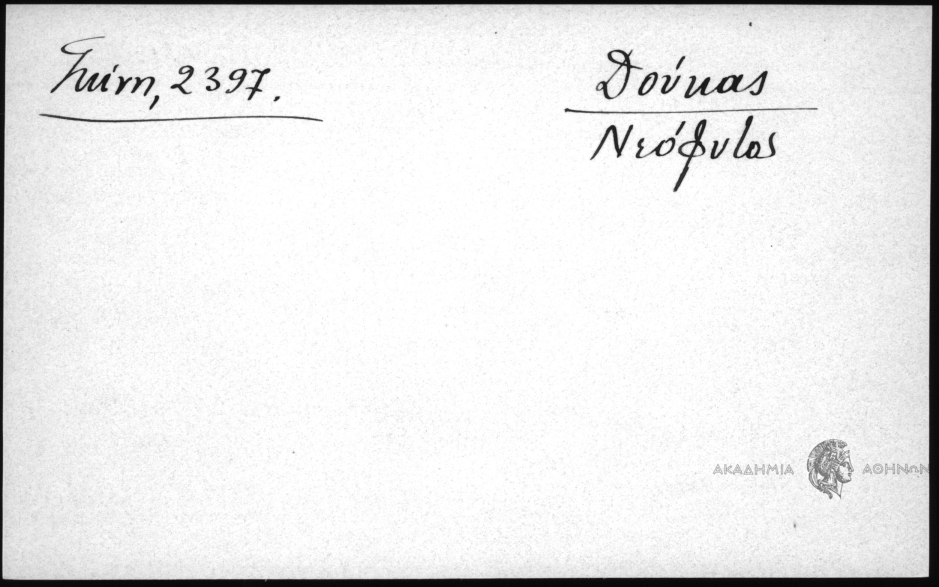 2397.
Δούκας
Νεόφυτος
ΑΚΑΔΗΜΙΑ ΑΘΗΝΩΝ